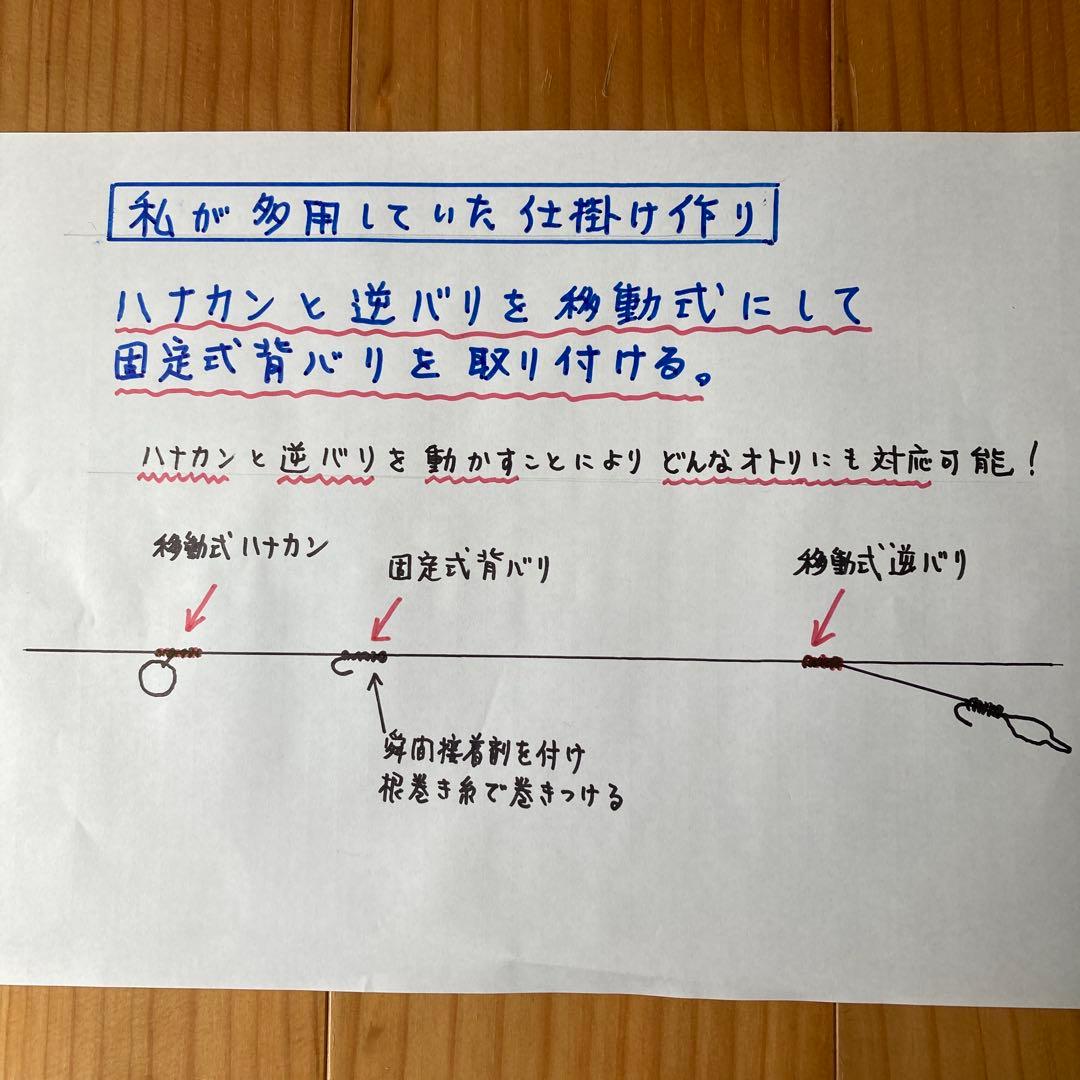 私が多用していた仕掛け作り
ハナカンと逆バリを移動式にして
固定式背バリを取り付ける。
ハナカンと逆バリを動かすことによりどんなオトリにも対応可能！
移動式ハナカン
固定式背バリ
移動式逆バリ
瞬間接着剤を付け
根巻き糸で巻きつける